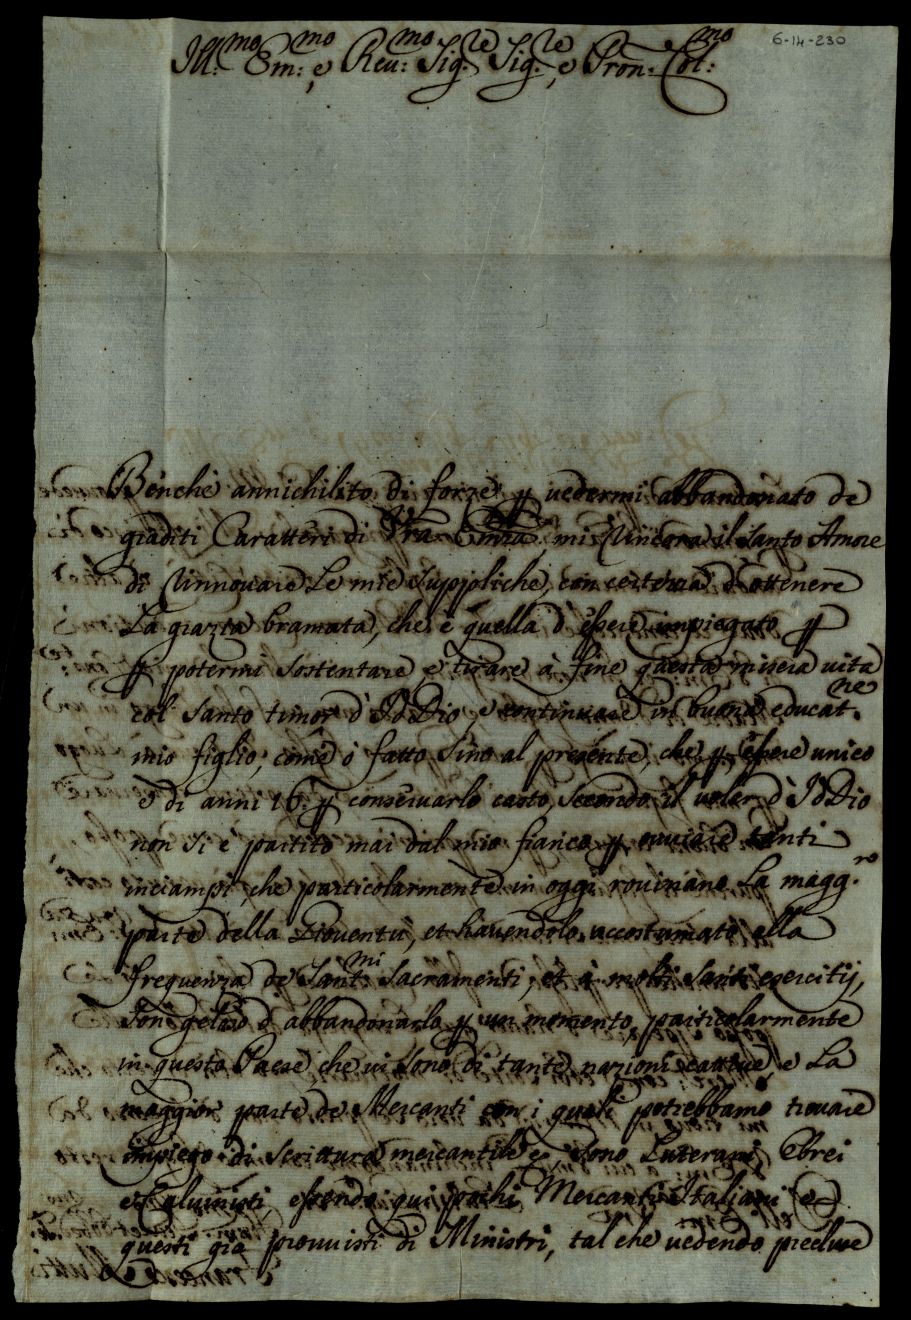 6-14-230
Ill:mo Em:mo e Reu:mo Sig:re Sig:re e Pron: Col:mo
Benche annichilito di forze p vedermi abbandonato de
graditi Caratteri di Vra Emza, mi rincora il Santo Amore
di rinnouare Le mie Suppliche, con certezza d'ottenere
La grazia bramata, che è quella d'essere impiegato p
p potermi sostentare e tirare à fine questa misera uita
col Santo timor d'IdDio, e continuare in buona educat.ne
mio figlio, come ò fatto Sino al presente, che p essere unico
e di anni 16 p conseruarlo casto, Secondo il uoler d'IdDio
non Si è partito mai dal mio fianco p ouuiare tanti
inciampi che particolarmente in oggi rouinano La magg.re
parte della Giouentù, et hauendolo accostumato alla
frequenza de Santmi Sacramenti, et à molti Santi esercitij,
Son geloso d'abbandonarlo p un momento, particolarmente
in questo Paese, che ui Sono di tante nazioni cattiue, e La
maggior parte de Mercanti con i quali potrebbamo trouare
impiego di Scrittura mercantile Sono Luterani, Ebrei
e Caluinisti, essendo qui pochi Mercanti Italiani e
questi già prouuisti di Ministri, tal che uedendo precluse